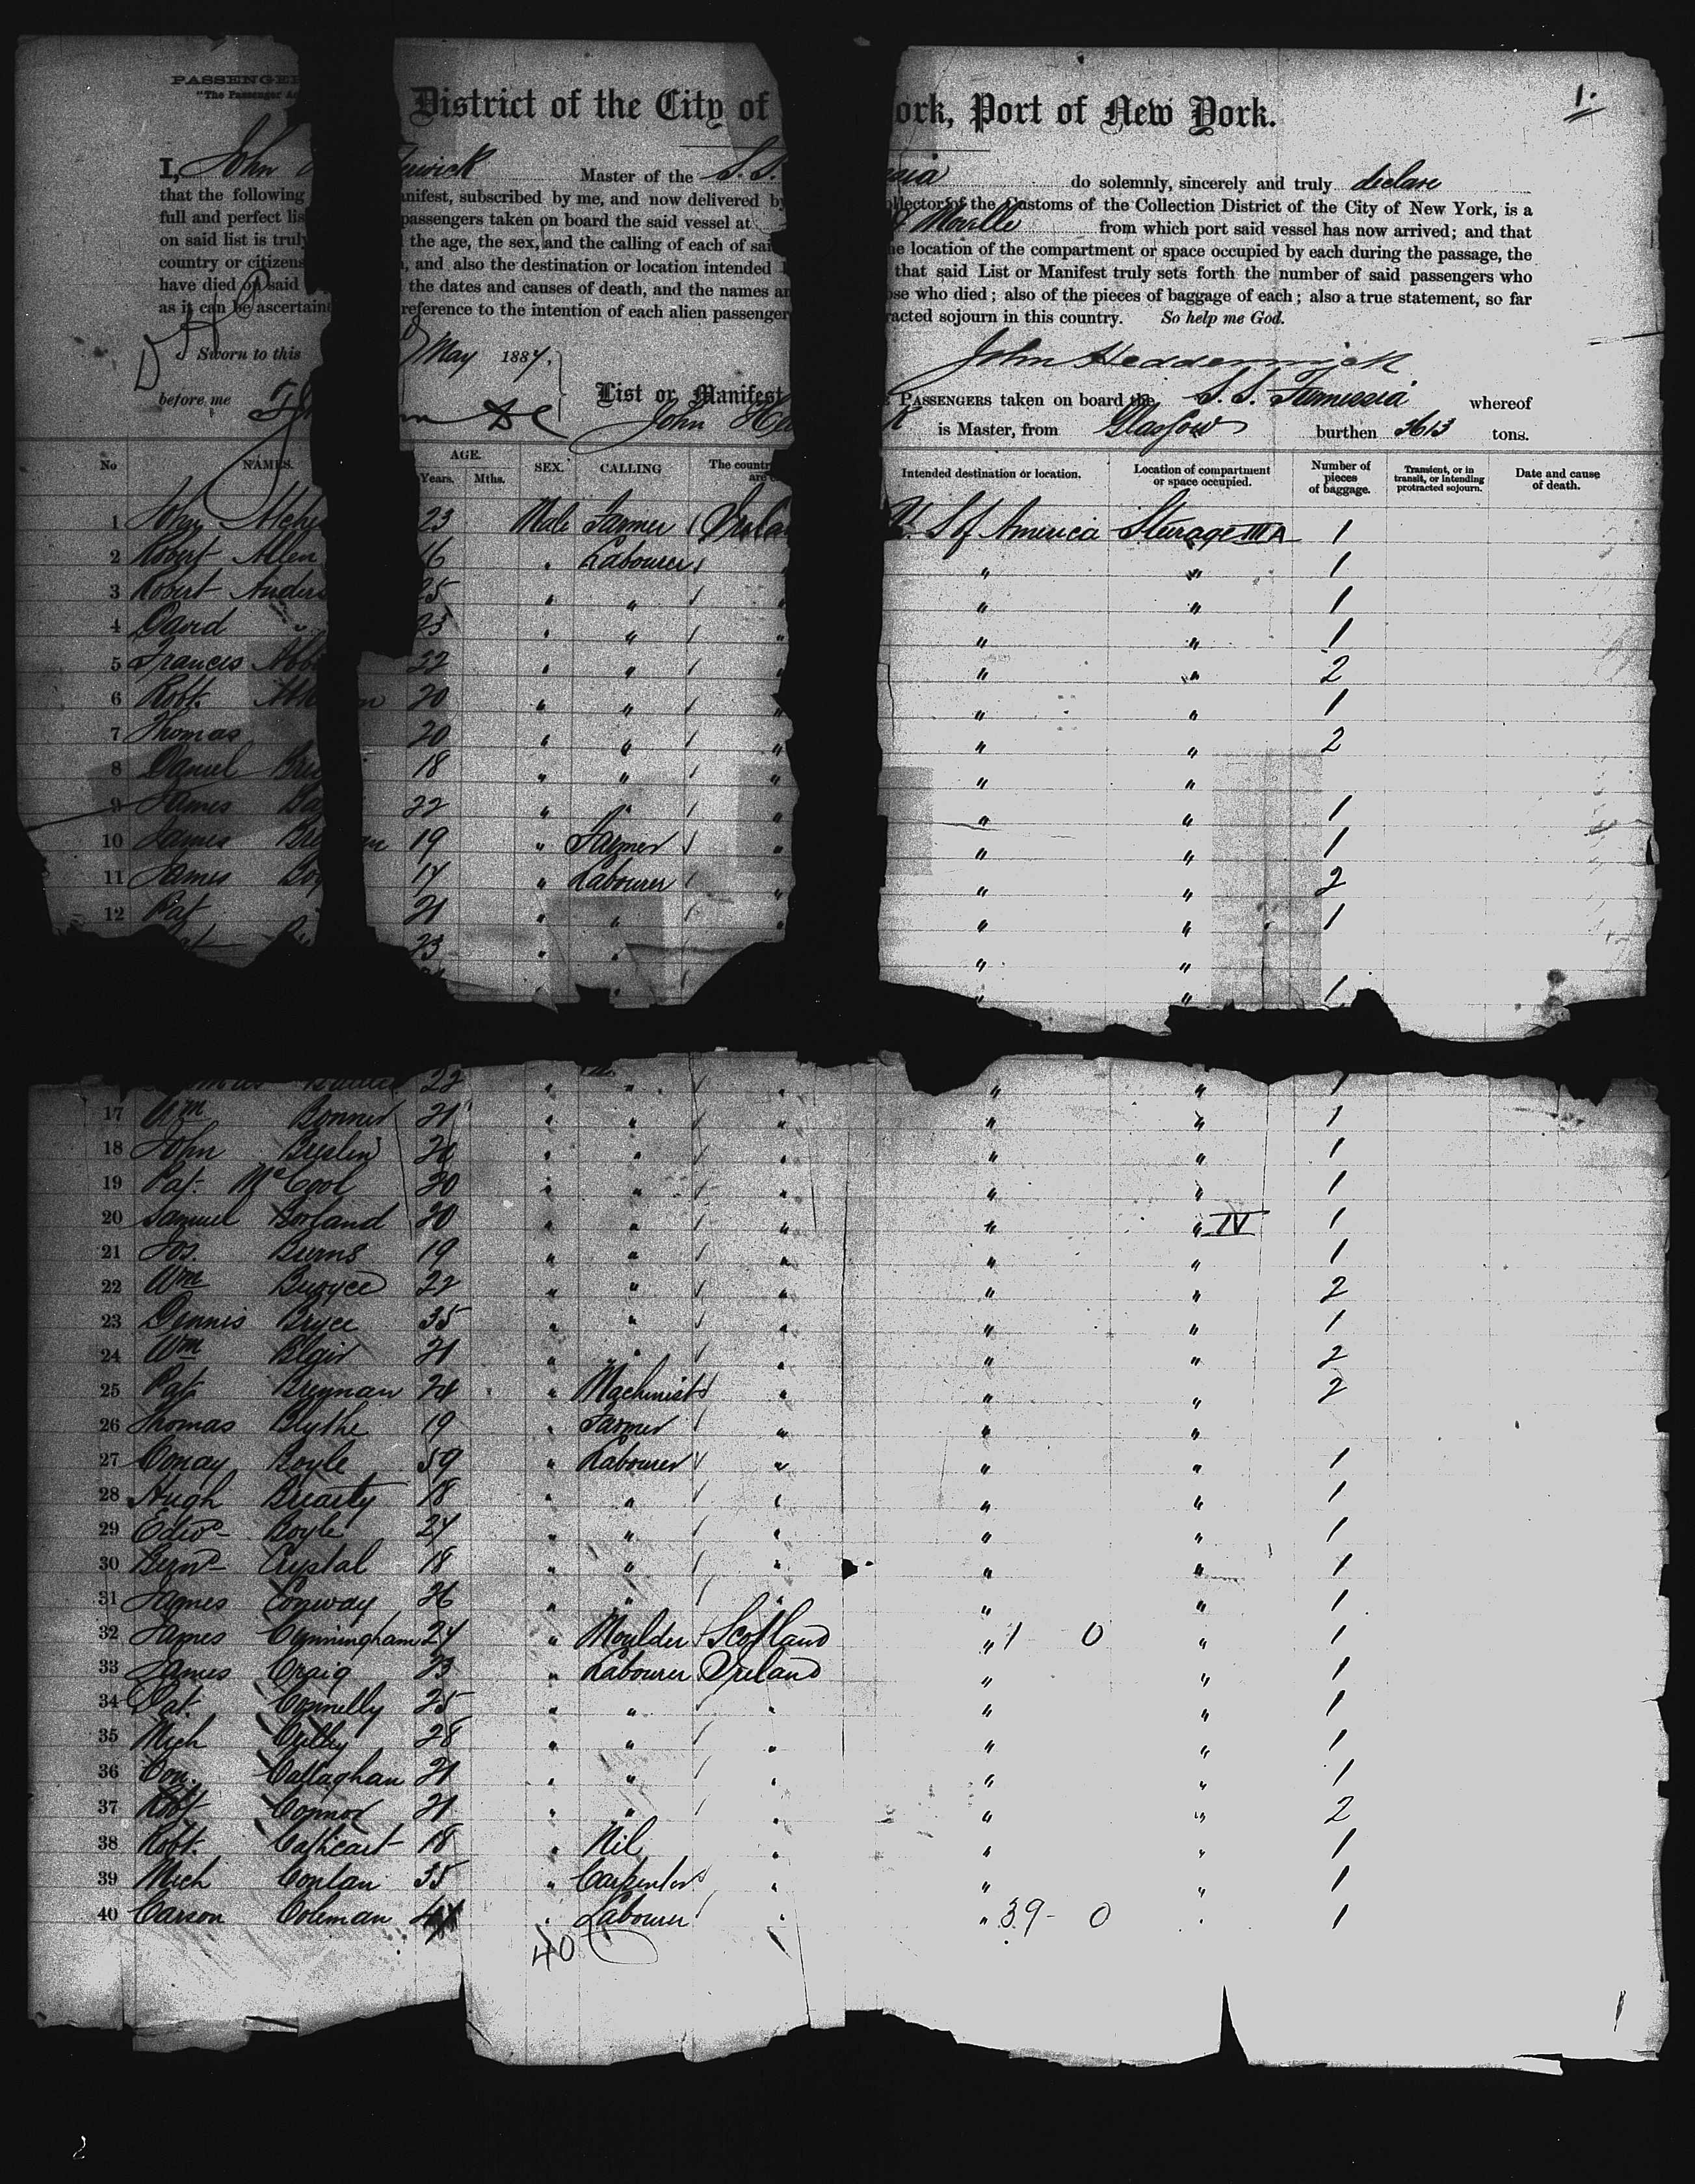 PASSENGER
"The Passenger Ac
District of the City of ork, Port of New York.
1.
I, John wick Master of the S. S. ssia do solemnly, sincerely and truly declare
that the following anifest, subscribed by me, and now delivered by ollector of the Customs of the Collection District of the City of New York, is a
full and perfect lis passengers taken on board the said vessel at & Moville from which port said vessel has now arrived; and that
on said list is truly the age, the sex, and the calling of each of sai he location of the compartment or space occupied by each during the passage, the
country or citizens , and also the destination or location intended that said List or Manifest truly sets forth the number of said passengers who
have died on said the dates and causes of death, and the names an ose who died; also of the pieces of baggage of each; also a true statement, so far
as it can be ascertaine reference to the intention of each alien passenger racted sojourn in this country. So help me God.
Sworn to this May 1884. John Hedderwick
before me List or Manifest PASSENGERS taken on board the S. S. Furnessia whereof
John He k is Master, from Glasgow burthen 3613 tons.
No NAMES. AGE. Years. Mths. SEX. CALLING The countr are c Intended destination or location. Location of compartment or space occupied. Number of pieces of baggage. Transient, or in transit, or intending protracted sojourn. Date and cause of death.
1 John 23 Male Farmer Irela U. S of America Steerage III A 1
2 Robert Allen 16 " Labourer " " " 1
3 Robert Anders 25 " " " " " 1
4 David " 25 " " " " " 1
5 Frances 22 " " " " " 2
6 Robt. n 20 " " " " " 1
7 Thomas 20 " " " " " 2
8 Daniel 18 " " " " "
9 James Ba 22 " " " " " 1
10 James Bre 19 " Farmer " " " 1
11 James Boy 17 " Labourer " " " 2
12 Pat 21 " " " " " 1
23 " " " "
" " " " 1
22 " " " " " 1
17 Wm Bonner 21 " " " " " 1
18 John Breslin 20 " " " " " 1
19 Pat. McCool 20 " " " " " 1
20 Samuel Borland 20 " " " " " IV 1
21 Jos. Burns 19 " " " " " 1
22 Wm Bwoyce 22 " " " " " 2
23 Dennis Bryce 35 " " " " " 1
24 Wm Blair 21 " " " " " 2
25 Pat Brennan 24 " Machinist " " " 2
26 Thomas Blythe 19 " Farmer " " "
27 Conay Boyle 59 " Labourer " " " 1
28 Hugh Brearty 18 " " " " " 1
29 Edwd Boyle 24 " " " " " 1
30 Bernd Crystal 18 " " " " " 1
31 James Conway 26 " " " " " 1
32 James Cunningham 24 " Moulder Scotland " 1 0 " 1
33 James Craig 23 " Labourer Ireland " " 1
34 Pat. Connelly 25 " " " " " 1
35 Mich 28 " " " " " 1
36 Con. Callaghan 21 " " " " " 1
37 Robt Connor 21 " " " " " 2
38 Robt. Cathcart 18 " Nil " " " 1
39 Mich Conlan 35 " Carpenter " " " 1
40 Carson Coleman " Labourer " " 39 - 0 " 1
40